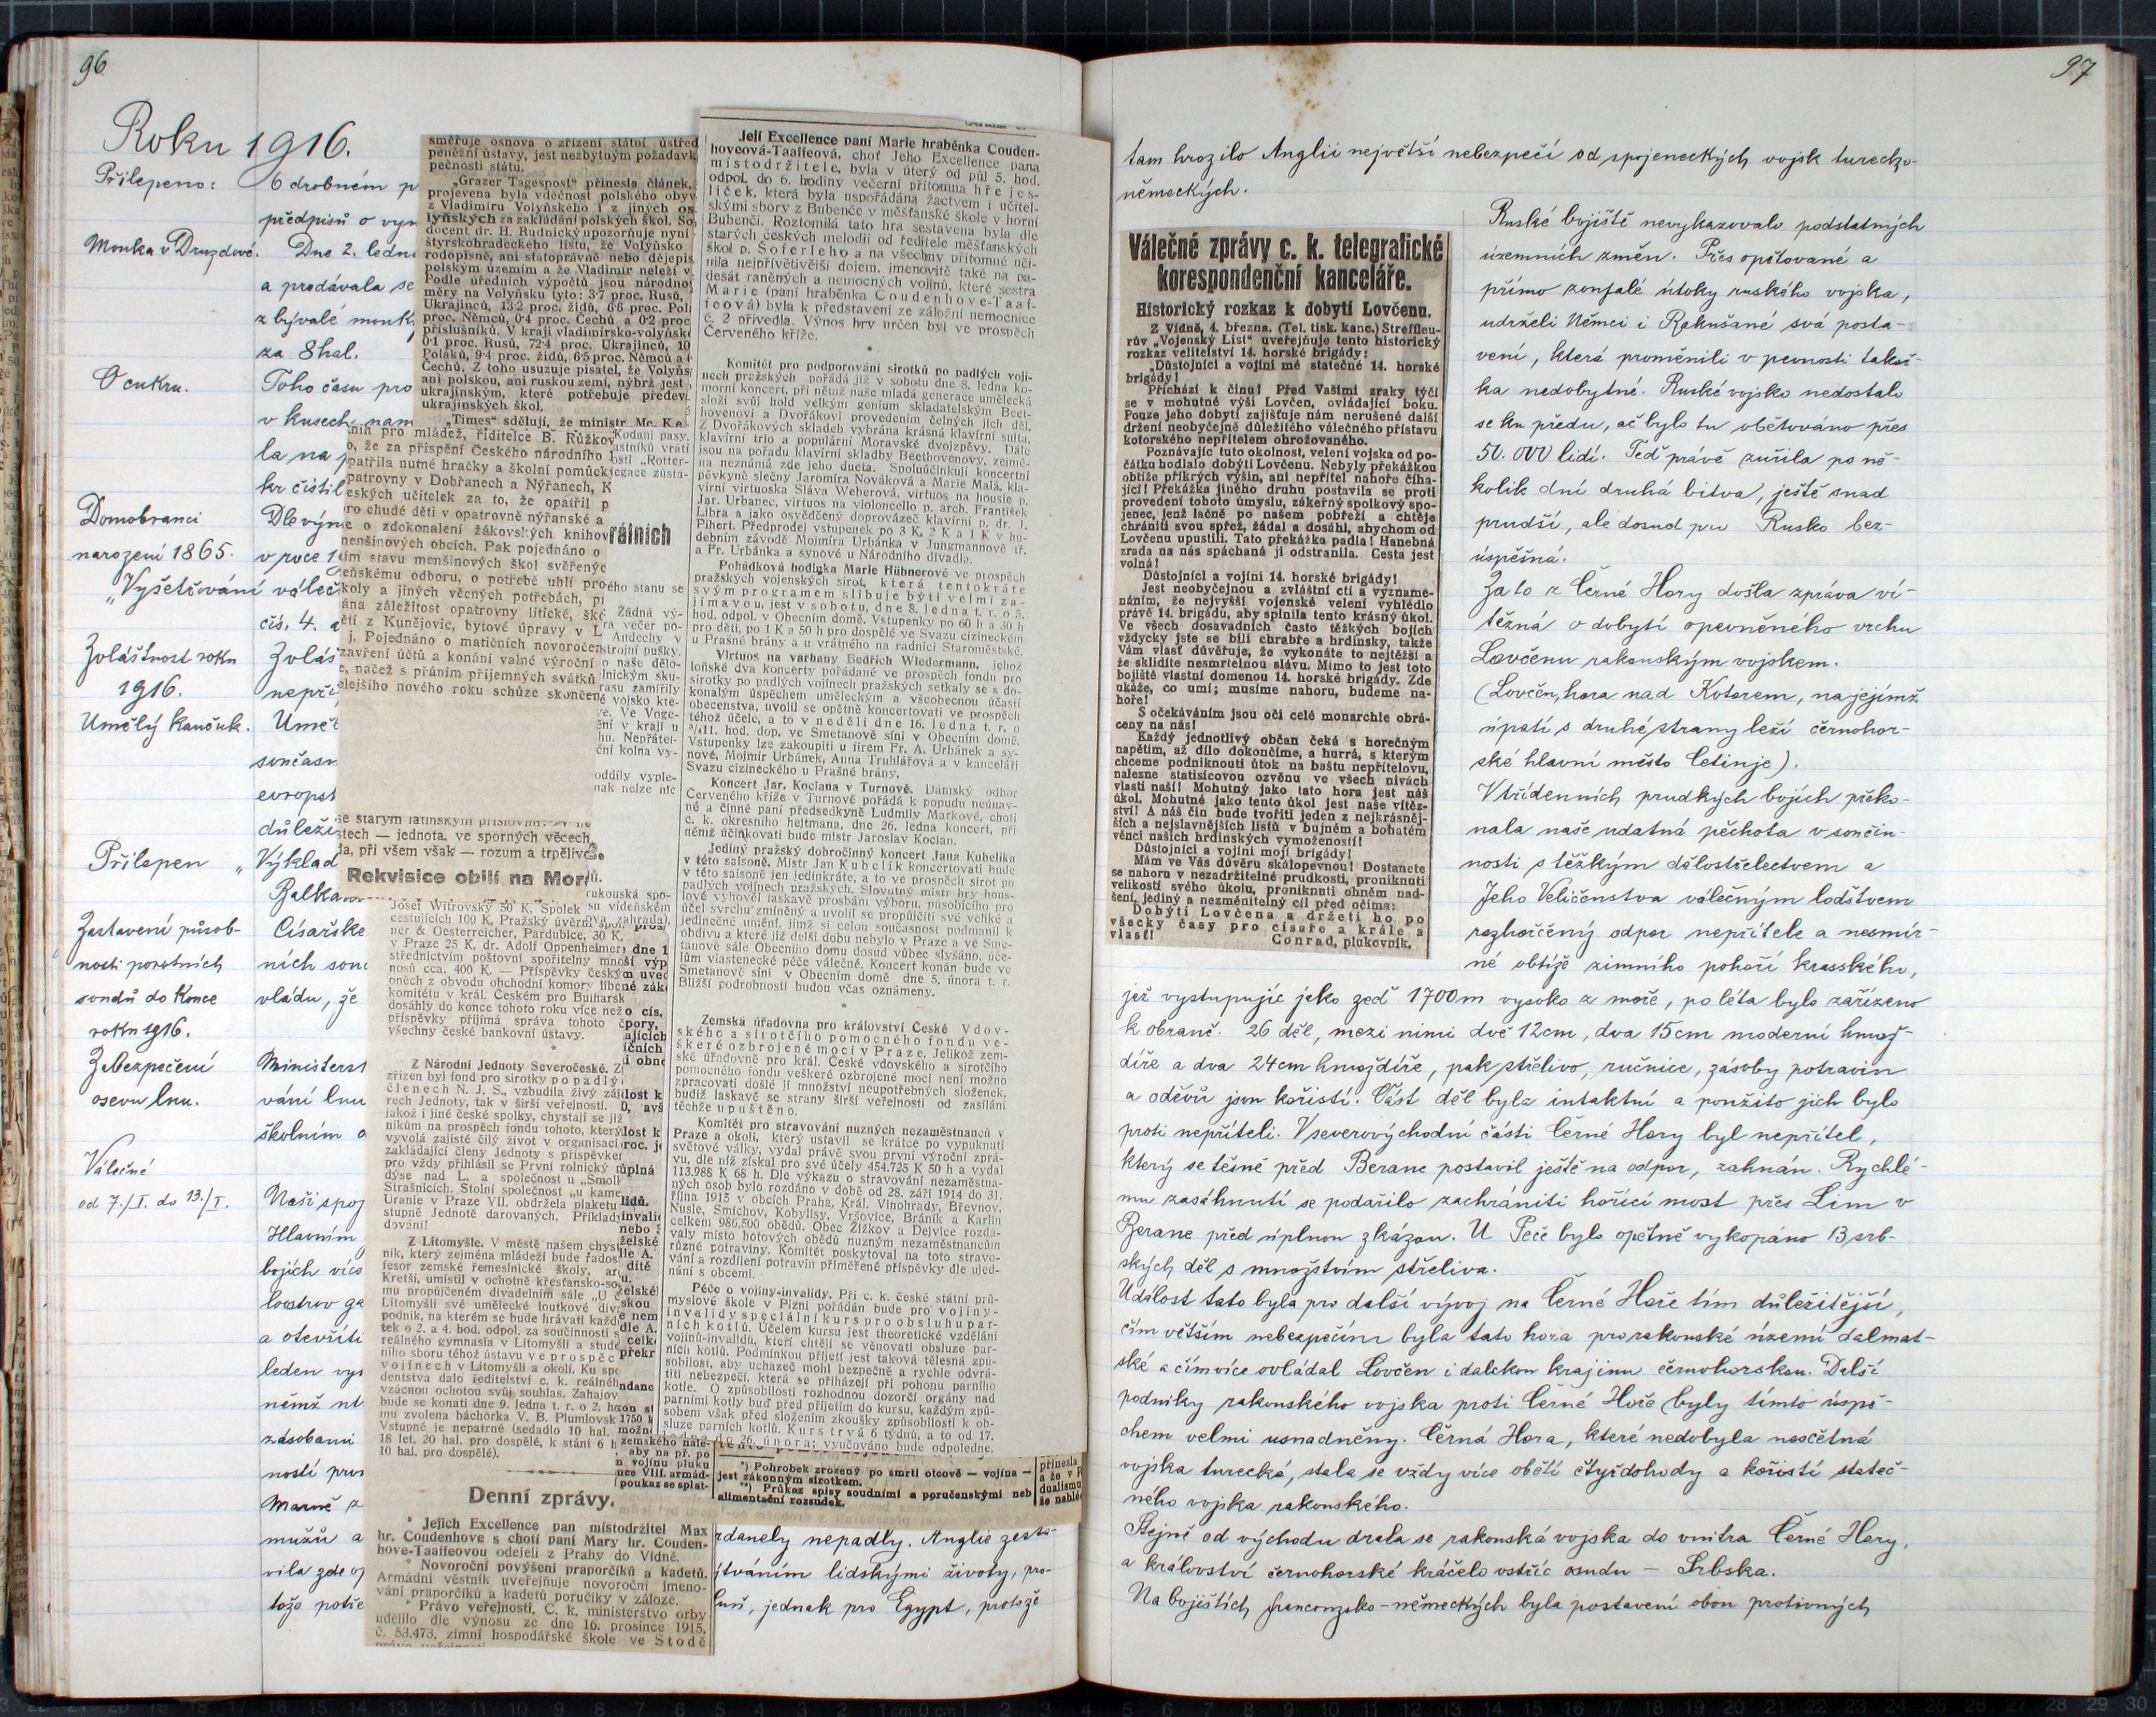 96
Roku 1916.
Přilepeno: O drobném p
předpisů o vyn
Mouka v Druzdové. Dne 2. ledn
a prodávala se
z bývalé mouk
za 8 hal.
O cukru. Toho času pro
v kusech nam
la na
kr čistil
Domobranci Dle výn
narození 1865. v roce 1
„Vyšetřování váleč
čís. 4. a
Zvláštnost roku Zvláš
1916. nepři
Umělý kaučuk. Uměl
současn
evropst
důleži
Přilepen „Výklad
Balkan
Zastavení působ- Císařské
nosti porotních ních soud
soudů do konce vládu, že
roku 1916.
Zabezpečení Ministerst
osevu lnu. vání lnu
školním o
Válečné
od 7./I. do 13./I. Naši spoj
Hlavním
bojích více
loostrov ga
a otevříti
leden vys
němž nt
zásobami
ností pros
Marně z
mužů a
vila zde oj
toža potře
směřuje osnova o zřízení státní ústřed
peněžní ústavy, jest nezbytným požadavk
pečnosti státu.
„Grazer Tagespost“ přinesla článek,
projevena byla vděčnost polského obyv
z Vladimíru Volyňského i z jiných os
lyňských za zakládání polských škol. So
docent dr. H. Rudnický upozorňuje nyní
štyrskohradeckého listu, že Volyňsko
rodopisně, ani státoprávně nebo dějepis
polským územím a že Vladimír neleží v
Podle úředních výpočtů jsou národno
měry na Volyňsku tyto: 3·7 proc. Rusů,
Ukrajinců, 13·2 proc. židů, 6·6 proc. Pol
proc. Němců, 0·4 proc. Čechů a 0·2 proc
příslušníků. V kraji vladimirsko-volyňsk
0·1 proc. Rusů, 72·4 proc. Ukrajinců, 10
Poláků, 9·4 proc. židů, 6·5 proc. Němců a
Čechů. Z toho usuzuje pisatel, že Volyňs
ani polskou, ani ruskou zemí, nýbrž jest
ukrajinským, které potřebuje předev
ukrajinských škol.
„Times“ sdělují, že ministr Mc. Ke
nin pro mládež, řiditelce B. Růžkov
o, že za přispění Českého národního
patřila nutné hračky a školní pomůck
patrovny v Dobřanech a Nýřanech, K
eských učitelek za to, že opatřil p
ro chudé děti v opatrovně nýřanské a
e o zdokonalení žákovských knihov
menšinových obcích. Pak pojednáno o
ím stavu menšinových škol svěřenýc
eňskému odboru, o potřebě uhlí pro
koly a jiných věcných potřebách, p
ána záležitost opatrovny litické, šk
ětí z Kunějovic, bytové úpravy v L
j. Pojednáno o matičních novoročen
zavření účtů a konání valné výroční
e, načež s přáním příjemných svátků
lejšího nového roku schůze skončen
Kodani pasy,
astníků vrátí
ostí „Rotter-
egace zůsta-
rálních
ého stanu se
Žádná vý-
ra večer po-
Andechy v
strojní pušky.
o naše dělo-
lnickým sku-
rasu zamířily
é vojsko kte-
e. Ve Voge-
ění v kraji u
hu. Nepřátel-
ční kolna vy-
oddíly vyple-
nak nelze nic
se starým latinským příslovím:
stech — jednota, ve sporných věcech
da, při všem však — rozum a trpěliv
Rekvisice obilí na Mor
Josef Witrovský 50 K, Spolek
cestujících 100 K, Pražský úvěrní spol
ner & Oesterreicher, Pardubice, 30 K,
v Praze 25 K, dr. Adolf Oppenheimer
střednictvím poštovní spořitelny mno
nosů cca. 400 K. — Příspěvky českým
oněch z obvodu obchodní komory lib
komitétu v král. Českém pro Bulharsk
dosáhly do konce tohoto roku více než
příspěvky přijímá správa tohoto
všechny české bankovní ústavy.
Z Národní Jednoty Severočeské. Z
zřízen byl fond pro sirotky popadlý
členech N. J. S., vzbudila živý záj
rech Jednoty, tak v širší veřejnosti.
jakož i jiné české spolky, chystají se již
níkům na prospěch fondu tohoto, který
vyvolá zajisté čilý život v organisaci
zakládající členy Jednoty s příspěvkem
pro vždy přihlásil se První rolnický p
dýse nad L. a společnost u „Smoll
Strašnicích. Stolní společnost „u kame
Uranie v Praze VII. obdržela plaketu
stupně Jednotě darovaných. Příklady
dování!
Z Litomyšle. V městě našem chys
ník, který zejména mládeží bude řados
fesor zemské řemeslnické školy, ar
Kretší, umístil v ochotně křesťansko-so
mu propůjčeném divadelním sále „U
Litomyšli své umělecké loutkové div
podnik, na kterém se bude hrávati každ
tek o 2. a 4. hod. odpol. za součinnosti s
reálného gymnasia v Litomyšli a stud
ního sboru téhož ústavu ve prospěc
vojínech v Litomyšli a okolí. Ku spo
dentstva dalo ředitelství c. k. reálného
vzácnou ochotou svůj souhlas. Zahajov
bude se konati dne 9. ledna t. r. o 2. ho
mu zvolena báchorka V. B. Plumlovsk
Vstupné je nepatrné (sedadlo 10 hal.
18 let, 20 hal. pro dospělé, k stání 6 h
10 hal. pro dospělé).
Denní zprávy.
* Jejich Excellence pan místodržitel Max
hr. Coudenhove s chotí paní Mary hr. Couden-
hove-Taaffeovou odejeli z Prahy do Vídně.
* Novoroční povýšení praporčíků a kadetů.
Armádní věstník uveřejňuje novoroční jmeno-
vání praporčíků a kadetů poručíky v záloze.
* Právo veřejnosti. C. k. ministerstvo orby
udělilo dle výnosu ze dne 16. prosince 1915,
č. 53.473, zimní hospodářské škole ve Stodě
Její Excellence paní Marie hraběnka Couden-
hoveová-Taaffeová, choť Jeho Excellence pana
místodržitele, byla v úterý od půl 5. hod.
odpol. do 6. hodiny večerní přítomna hře jes-
liček, která byla uspořádána žactvem i učitel-
skými sbory z Bubenče v měšťanské škole v horní
Bubenči. Roztomilá tato hra sestavena byla dle
starých českých melodií od ředitele měšťanských
škol p. Šoferleho a na všechny přítomné uči-
nila nejpřívětivější dojem, jmenovitě také na pa-
desát raněných a nemocných vojínů, které sestra
Marie (paní hraběnka Coudenhove-Taaf-
feová) byla k představení ze záložní nemocnice
č. 2 přivedla. Výnos hry určen byl ve prospěch
Červeného kříže.
*
Komitét pro podporování sirotků po padlých voji-
nech pražských pořádá již v sobotu dne 8. ledna ko-
morní koncert, při němž naše mladá generace umělecká
složí svůj hold velkým geniům skladatelským Beet-
hovenovi a Dvořákovi provedením čelných jich děl.
Z Dvořákových skladeb vybrána krásná klavírní suita,
klavírní trio a populární Moravské dvojzpěvy. Dále
jsou na pořadu klavírní skladby Beethovenovy, zejmé-
na neznámá zde jeho dueta. Spoluúčinkují koncertní
pěvkyně slečny Jaromíra Nováková a Marie Malá, kla-
vírní virtuoska Sláva Weberová, virtuos na housle p.
Jar. Urbanec, virtuos na violoncello p. arch. František
Libra a jako osvědčený doprovázeč klavírní p. dr. J.
Pihert. Předprodej vstupenek po 3 K, 2 K a 1 K v hu-
debním závodě Mojmíra Urbánka v Jungmannově tř.
a Fr. Urbánka a synové u Národního divadla.
Pohádková hodinka Marie Hübnerové ve prospěch
pražských vojenských sirot, která tentokráte
svým programem slibuje býti velmi za-
jímavou, jest v sobotu, dne 8. ledna t. r. o 5.
hod. odpol. v Obecním domě. Vstupenky po 60 h a 30 h
pro děti, po 1 K a 50 h pro dospělé ve Svazu cizineckém
u Prašné brány a u vrátného na radnici Staroměstské.
Virtuos na varhany Bedřich Wiedermann, jehož
loňské dva koncerty pořádané ve prospěch fondu pro
sirotky po padlých vojínech pražských setkaly se s do-
konalým úspěchem uměleckým a všeobecnou účastí
obecenstva, uvolil se opětně koncertovati ve prospěch
téhož účele, a to v neděli dne 16. ledna t. r. o
³/₄11. hod. dop. ve Smetanově síni v Obecním domě.
Vstupenky lze zakoupiti u firem Fr. A. Urbánek a sy-
nové, Mojmír Urbánek, Anna Truhlářová a v kanceláři
Svazu cizineckého u Prašné brány.
Koncert Jar. Kociana v Turnově. Dámský odbor
Červeného kříže v Turnově pořádá k popudu neúnav-
né a činné paní předsedkyně Ludmily Markové, choti
c. k. okresního hejtmana, dne 26. ledna koncert, při
němž účinkovati bude mistr Jaroslav Kocian.
Jediný pražský dobročinný koncert Jana Kubelíka
v této saisoně. Mistr Jan Kubelík koncertovati bude
v této saisoně jen jedinkráte, a to ve prospěch sirot po
padlých vojínech pražských. Slovutný mistr hry hous-
lové vyhověl laskavě prosbám výboru, působícího pro
účel svrchu zmíněný a uvolil se propůjčiti své veliké a
jedinečné umění, jímž si celou současnost podmanil k
obdivu a které již delší dobu nebylo v Praze a ve Sme-
tanově sále Obecního domu dosud vůbec slyšáno, úče-
lům vlastenecké péče válečné. Koncert konán bude ve
Smetanově síni v Obecním domě dne 5. února t. r.
Bližší podrobnosti budou včas oznámeny.
*
Zemská úřadovna pro království České Vdov-
ského a sirotčího pomocného fondu ve-
škeré ozbrojené moci v Praze. Jelikož zem-
ské úřadovně pro král. České vdovského a sirotčího
pomocného fondu veškeré ozbrojené moci není možno
zpracovati došlé jí množství neupotřebných složenek,
budiž laskavě se strany širší veřejnosti od zasílání
těchže upuštěno.
Komitét pro stravování nuzných nezaměstnanců v
Praze a okolí, který ustavil se krátce po vypuknutí
světové války, vydal právě svou první výroční zprá-
vu, dle níž získal pro své účely 454.725 K 50 h a vydal
113.988 K 68 h. Dle výkazu o stravování nezaměstna-
ných osob bylo rozdáno v době od 28. září 1914 do 31.
října 1915 v obcích Praha, Král. Vinohrady, Břevnov,
Nusle, Smíchov, Kobylisy, Vršovice, Bráník a Karlín
celkem 986.500 obědů. Obec Žižkov a Dejvice rozda-
valy místo hotových obědů nuzným nezaměstnancům
různé potraviny. Komitét poskytoval na toto stravo-
vání a rozdílení potravin přiměřené příspěvky dle ujed-
nání s obcemi.
Péče o vojíny-invalidy. Při c. k. české státní prů-
myslové škole v Plzni pořádán bude pro vojíny-
invalidy speciální kurs pro obsluhu par-
ních kotlů. Účelem kursu jest theoretické vzdělání
vojínů-invalidů, kteří chtějí se věnovati obsluze par-
ních kotlů. Podmínkou přijetí jest taková tělesná způ-
sobilost, aby uchazeč mohl bezpečně a rychle odvrá-
titi nebezpečí, která se přiházejí při pohonu parního
kotle. O způsobilosti rozhodnou dozorčí orgány nad
parními kotly buď před přijetím do kursu, každým způ-
sobem však před složením zkoušky způsobilosti k ob-
sluze parních kotlů. Kurs trvá 6 týdnů, a to od 17.
ledna do 26. února; vyučováno bude odpoledne.
zemského nále-
aby na př. po
n vojínu pluku
nce VIII. armád-
poukaz se splat-
*) Pohrobek zrozený po smrti otcově — vojína —
jest zákonným sirotkem.
**) Průkaz spisy soudními a poručenskými neb
alimentační rozsudek.
přinesla
a že v R
dualismu
že nahlé
rdanely nepadly. Anglie zasta-
jtváním lidskými životy, pro-
luň, jednak pro Egypt, protože
97
tam hrozilo Anglii největší nebezpečí od spojeneckých vojsk turecko-
německých.
Válečné zprávy c. k. telegrafické
korespondenční kanceláře.
Historický rozkaz k dobytí Lovčenu.
Z Vídně, 4. března. (Tel. tisk. kanc.) Streffleu-
rův „Vojenský List“ uveřejňuje tento historický
rozkaz velitelství 14. horské brigády:
„Důstojníci a vojíni mé statečné 14. horské
brigády!
Přichází k činu! Před Vašimi zraky týčí
se v mohutné výši Lovčen, ovládající boku.
Pouze jeho dobytí zajišťuje nám nerušené další
držení neobyčejně důležitého válečného přístavu
kotorského nepřítelem ohrožovaného.
Poznávajíc tuto okolnost, velení vojska od po-
čátku hodlalo dobýti Lovčenu. Nebyly překážkou
obtíže příkrých výšin, ani nepřítel nahoře číha-
jící! Překážka jiného druhu postavila se proti
provedení tohoto úmyslu, zákeřný spolkový spo-
jenec, jenž lačně po našem pobřeží a chtěje
chrániti svou spřež, žádal a dosáhl, abychom od
Lovčenu upustili. Tato překážka padla! Hanebná
zrada na nás spáchaná ji odstranila. Cesta jest
volná!
Důstojníci a vojíni 14. horské brigády!
Jest neobyčejnou a zvláštní ctí a vyzname-
náním, že nejvyšší vojenské velení vyhlédlo
právě 14. brigádu, aby splnila tento krásný úkol.
Ve všech dosavadních často těžkých bojích
vždycky jste se bili chrabře a hrdinsky, takže
Vám vlasť důvěřuje, že vykonáte to nejtěžší a
že sklidíte nesmrtelnou slávu. Mimo to jest toto
bojiště vlastní domenou 14. horské brigády. Zde
ukáže, co umí; musíme nahoru, budeme na-
hoře!
S očekáváním jsou oči celé monarchie obrá-
ceny na nás!
Každý jednotlivý občan čeká s horečným
napětím, až dílo dokončíme, a hurrá, s kterým
chceme podniknouti útok na baštu nepřítelovu,
nalezne statisícovou ozvěnu ve všech nivách
vlasti naší! Mohutný jako tato hora jest náš
úkol. Mohutné jako tento úkol jest naše vítěz-
ství! A náš čin bude tvořiti jeden z nejkrásněj-
ších a nejslavnějších listů v bujném a bohatém
věnci našich hrdinských vymožeností!
Důstojníci a vojíni mojí brigády!
Mám ve Vás důvěru skálopevnou! Dostanete
se nahoru v nezadržitelné prudkosti, proniknuti
velikostí svého úkolu, proniknuti ohněm nad-
šení, jediný a nezměnitelný cíl před očima:
Dobýti Lovčena a držeti ho po
všecky časy pro císaře a krále a
vlast!
Conrad, plukovník.
Ruské bojiště nevykazovalo podstatných
územních změn. Přes opětované a
přímo zoufalé útoky ruského vojska,
udrželi Němci i Rakušané svá posta-
vení, která proměnili v pevnosti takoř-
ka nedobytné. Ruské vojsko nedostalo
se ku předu, ač bylo tu obětováno přes
50.000 lidí. Teď právě zuřila po ně-
kolik dní druhá bitva, ještě snad
prudší, ale dosud pro Rusko bez-
úspěšná.
Za to z Černé Hory došla zpráva ví-
tězná o dobytí opevněného vrchu
Lovčenu rakouským vojskem.
(Lovčen, hora nad Kotorem, na jejímž
úpatí s druhé strany leží černohor-
ské hlavní město Cetinje).
V třídenních prudkých bojích překo-
nala naše udatná pěchota v součin-
nosti s těžkým dělostřelectvem a
Jeho Veličenstva válečným loďstvem
rozhořčený odpor nepřítele a nesmír-
né obtíže zimního pohoří krasského,
jež vystupujíc jako zeď 1700m vysoko z moře, po léta bylo zařízeno
k obraně. 26 děl, mezi nimi dvě 12cm, dva 15cm moderní hmož-
díře a dva 24cm hmoždíře, pak střelivo, ručnice, zásoby potravin
a oděvů jsou kořistí. Část děl byla intaktní a použito jich bylo
proti nepříteli. V severovýchodní části Černé Hory byl nepřítel,
který se těsně před Berane postavil ještě na odpor, zahnán. Rychlé-
mu zasáhnutí se podařilo zachrániti hořící most přes Lim v
Berane před úplnou zkázou. U Peče bylo opětně vykopáno 13 srb-
ských děl s množstvím střeliva.
Událost tato byla pro další vývoj na Černé Hoře tím důležitější,
čím větším nebezpečím byla tato hora pro rakouské území dalmat-
ské a čím více ovládal Lovčen i dalekou krajinu černohorskou. Další
podniky rakouského vojska proti Černé Hoře byly tímto úspě-
chem velmi usnadněny. Černá Hora, které nedobyla nesčetná
vojska turecká, stala se vždy více obětí čtyřdohody a kořistí stateč-
ného vojska rakouského.
Stejně od východu drala se rakouská vojska do vnitra Černé Hory,
a království černohorské kráčelo vstříc osudu – Srbska.
Na bojištích francouzsko-německých byla postavení obou protivných